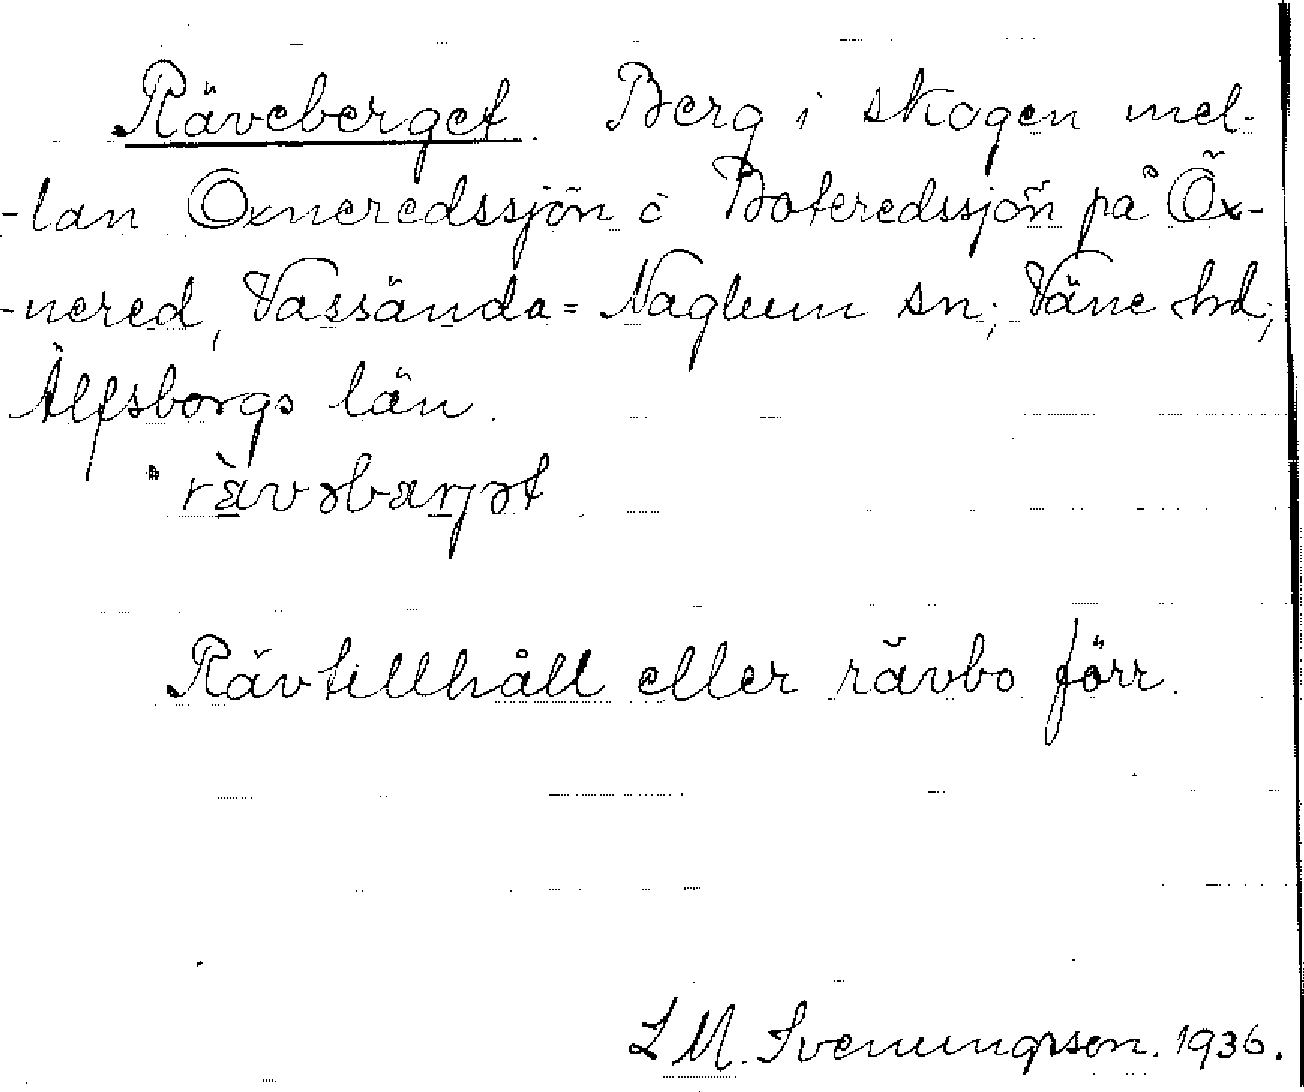 Räveberget. Berg i skogen mel-
-lan Öxneredssjön o Boteredssjön på Öx-
-nered, Vassända=Naglum sn; Väne hd;
Älfsborgs län.
rä̀vəbærjət
Rävtillhåll eller rävbo förr.
L M. Svenungsson. 1936.